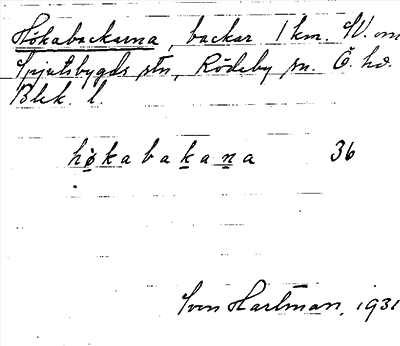 Hökabackarna, backar 1 km. SV. om
Spjutsbygds stn, Rödeby sn. Ö. hd.
Blek. l.
hökabakana 36
Sven Hartman, 1931